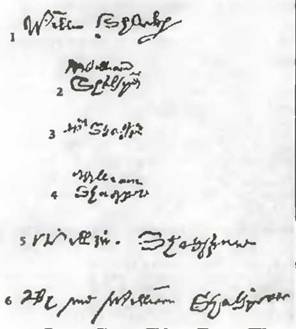 1 Willm Shakp
William
2 Shakspēr
3 Wm Shakspē
William
4 Shakspere
5 Willm Shakspere
6 By me William Shakspeare